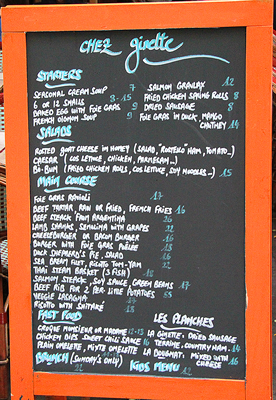 CHEZ ginette
STARTERS
SEASONAL CREAM SOUP 7
6 OR 12 SNAILS 8-15
BAKED EGG WITH FOIE GRAS 9
FRENCH ONION SOUP 9
SALMON GRAVLAX 12
FRIED CHICKEN SPRING ROLLS 8
DRIED SAUSAGE 8
FOIE GRAS IN DUCK, MANGO
CHUTNEY 14
SALADS
ROSTED GOAT CHEESE IN HONEY (SALAD, "ROSTELO" HAM, TOMATO...)
CAESAR (COS LETTUCE, CHICKEN, PARMESAN...)
BO-BUN (FRIED CHICKEN ROLLS, COS LETTUCE, SOY NOODLES...) 15
MAIN COURSE
FOIE GRAS RAVIOLI 17
BEEF TARTAR, RAW OR FRIED, FRENCH FRIES 16
BEEF STEACK FROM ARGENTINA 26
LAMB SHANKS, SEMOLINA WITH GRAPES 22
CHEESEBURGER OR BACON BURGER 16
BURGER WITH FOIE GRAS POÊLÉE 18
DUCK SHEPHERD'S PIE, SALAD 16
SEA BREAM FILET, RISOTTO TOM-YAM 22
THAÏ STEAM BASKET (3 FISH) 18
SALMON STEACK, SOY SAUCE, GREEN BEANS 17
BEEF RIB FOR 2 PERS. LITTLE POTATOES 55
VEGGIE LASAGNA 14
RISOTTO WITH SHITAKÉ 15
FAST FOOD
CROQUE MONSIEUR OR MADAME 12-13
CHICKEN BIES SWEET CHILI SAUCE 16
PLAIN OMELETTE, MIXTE OMELETTE
BRUNCH (SUNDAY'S ONLY)
22
LES PLANCHES
LA GINETTE: DRIED SAUSAGE
TERRINE, COUNTRY HAM 14
LA GOURMAT: MIXED WITH
CHEESE 16
KIDS MENU 12